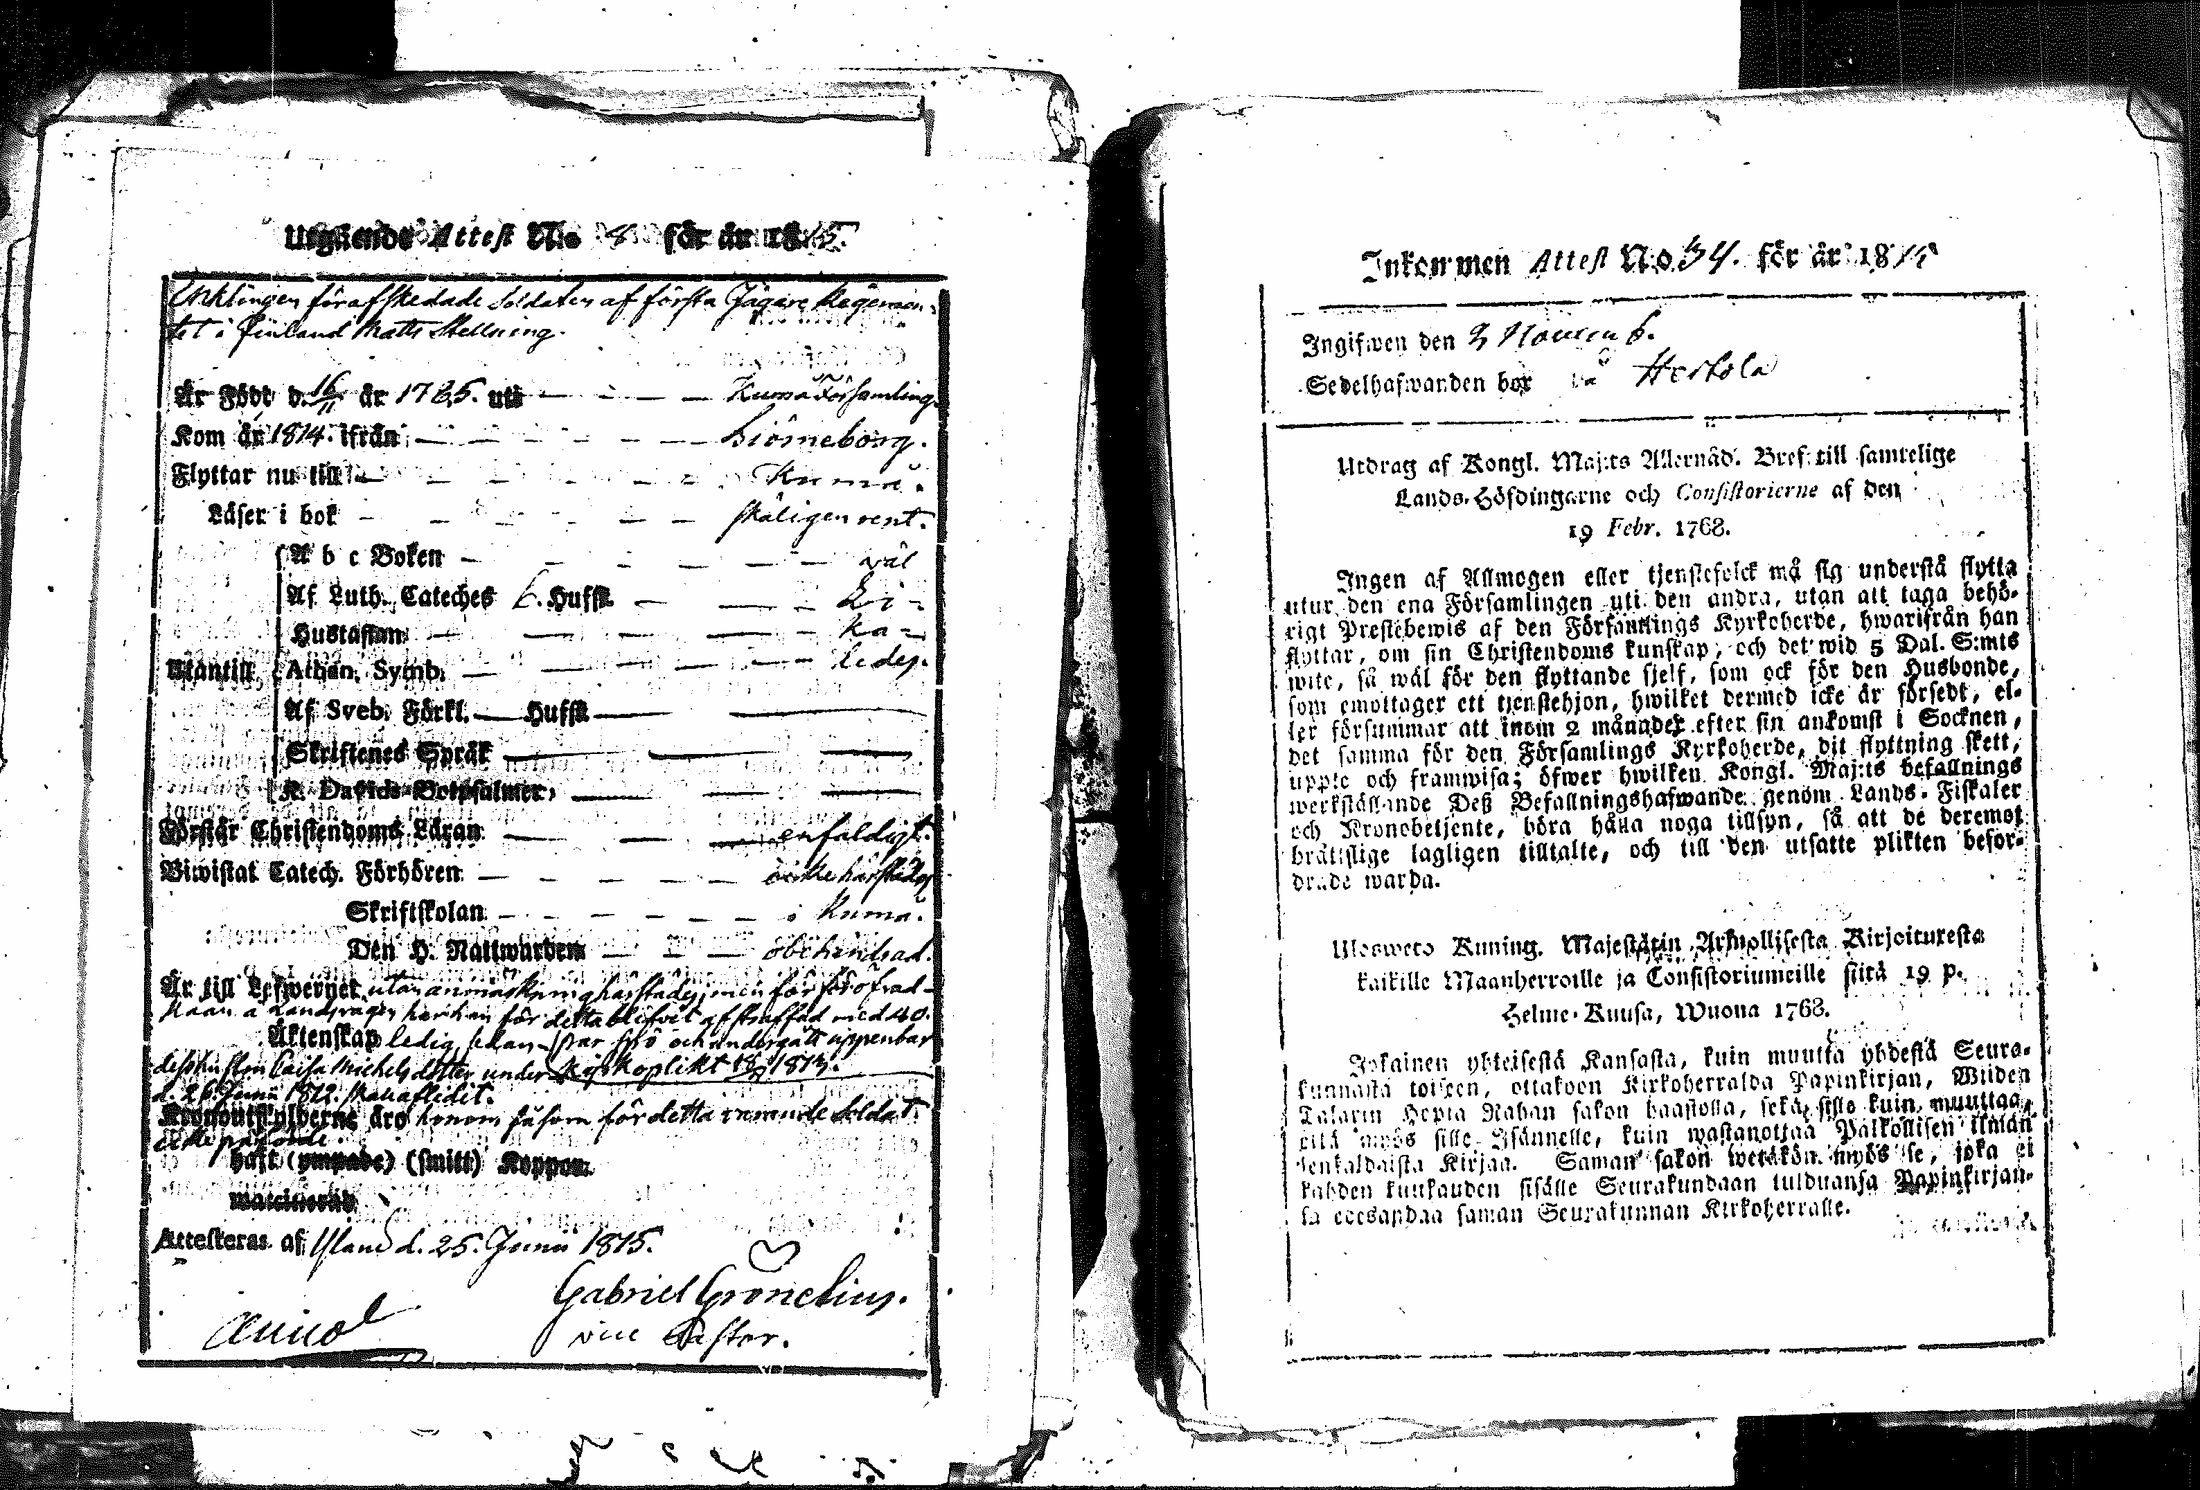 Utgående Attest No 8 för år 1815.
Ynklingen för afskedade Soldaten af första Jägare Regemen-
tet i Finland Matts Mellning.
Är Född d. 16/11 år 1785. uti — Kumo Församling.
Kom år 1814. ifrån — Biörneborg.
Flyttar nu till — Kumå.
Läser i bok — skäligen rent.
A b c Boken — wäl
Af Luth. Cateches 6. Hufst. — Li-
Hustaflan — ka-
Utantill Athan. Symb. — ledes.
Af Sveb. Förkl. — Hufst. —
Skriftenes Språk —
K. Davids Botpsalmer, —
Förstår Christendoms Läran — enfaldigt.
Biwistat Catech. Förhören — icke härstädes
Skriftskolan — i Kumå.
Den H. Nattwarden — obehindrad.
Är till Lefwernet utan anmärkning härstädes, men för föröfvad
har han för detta blifvit afstraffad med 40.
Äktenskap ledig, par spö och undergått uppenbar
Caisa Michelsdotter under Kyrkoplikt 1813.
d. 26 Junii 1812.
Kronoutskylderne äro honom såsom för detta varande Soldat
icke påförde.
haft (ympade) (smitt) Koppor.
waccinerad
Attesteras af Yland d. 25. Junii 1815.
Gabriel Grönelius.
vice Pastor.
Inkommen Attest No 34. för år 1815
Ingifwen den 2 Novemb.
Sedelhafwanden bor på Hertola
Utdrag af Kongl. Maj:ts Allernåd. Bref till samtelige
Lands-Höfdingarne och Consistorierne af den
19 Febr. 1768.
Ingen af Allmogen eller tjenstefolck må sig understå flytta
utur den ena Församlingen uti den andra, utan att taga behö-
rigt Prestebewis af den Församlings Kyrkoherde, hwarifrån han
flyttar, om sin Christendoms kunskap, och det wid 5 Dal. S:mts
wite, så wäl för den flyttande sjelf, som ock för den Husbonde,
som emottager ett tjenstehjon, hwilket dermed icke är försedt, el-
ler försummar att inom 2 månader efter sin ankomst i Socknen,
det samma för den Församlings Kyrkoherde, dit flyttning skett,
uppte och framwisa; öfwer hwilken Kongl. Maj:ts befallnings
werkställande Deß Befallningshafwande genom Lands-Fiskaler
och Kronobetjente, böra hålla noga tillsyn, så att de deremot
bråttslige lagligen tilltalte, och till den utsatte plikten befor-
drade warda.
Ulosweto Kuning. Majestätin Armollisesta Kirjoituxesta
kaikille Maanherroille ja Consistoriumeille siitä 19 p.
Helme-Kuusa, Wuona 1768.
Jokainen yhteisestä Kansasta, kuin muutta yhdestä Seura-
kunnasta toiseen, ottakoon Kirkoherralda Papinkirjan, Wiiden
Talarin Hopia Rahan sakon haastolla, sekä sille kuin muuttaa,
että myös sille Isännelle, kuin wastanottaa Palkollisen ilman
senkaldaista Kirjaa. Saman sakon wetäkön myös se, joka ei
kahden kuukauden sisälle Seurakundaan tulduansa Papinkirjan-
sa edesandaa saman Seurakunnan Kirkoherralle.